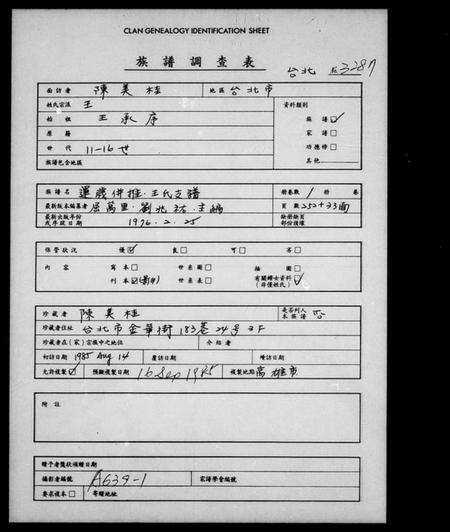 CLAN GENEALOGY IDENTIFICATION SHEET
族譜調查表
台北 3287
面訪者 陳美桂 地區 台北市
姓氏宗派 王 資料類別
始祖 王承序 族譜☑
原籍 家譜□
世代 11-16世 功德榜□
族譜包含地區 其他
族譜名 王氏支譜 冊卷數 1 冊 卷
最新版本編纂者 屈萬里·劉兆祐·主編 頁數 252+33面
最新出版年份或序跋日期 1976. 2. 25 缺冊缺頁部份按據
保管狀況 優☑ 良□ 可□ 否□
內容 寫本□ 世系圖□ 插圖□
刊本☑ 世系表□ 有關婦女資料(非僅姓氏)☑
珍藏者 陳美桂 是否列入本族譜 否
珍藏者住址 台北市金華街183巷24号3F
珍藏者在(家)宗族中之地位 介紹者
初訪日期 1985 Aug 14 覆訪日期 增訪日期
允許複製☑ 預擬複製日期 16 Sep 1985 複製地點 高雄市
附註
贈予者獎狀頒贈日期
攝影者編號 A639-1 家譜學會編號
要求複本□ 寄贈地址